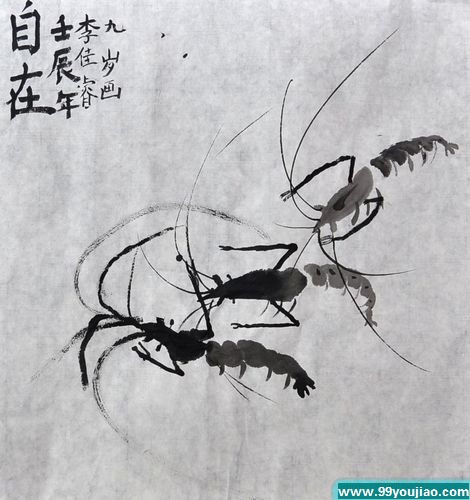 自在
壬辰年
李佳睿
九岁画
www.99youjiao.com